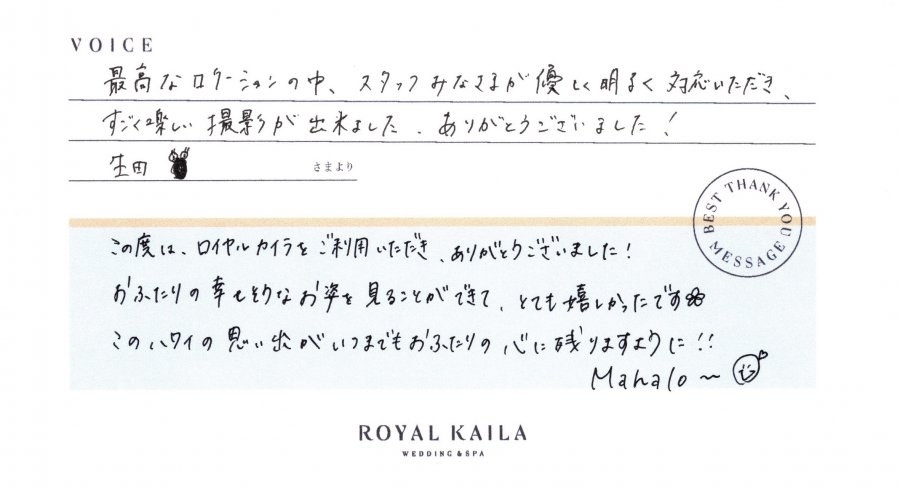 VOICE
最高なロケーションの中、スタッフみなさまが優しく明るく対応いただき、
すごく楽しい撮影が出来ました。ありがとうございました!
生田
さまより
BEST THANK YOU MESSAGE
この度は、ロイヤルカイラをご利用いただき、ありがとうございました!
おふたりの幸せそうなお姿を見ることができて、とても嬉しかったです
このハワイの思い出がいつまでもおふたりの心に残りますように!!
Mahalo〜
ROYAL KAILA
WEDDING & SPA